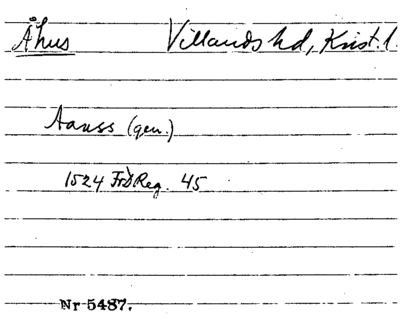 Åhus Villands hd, Krist. l.
Aauss (gen.)
1524 FrIReg. 45
Nr 5487.